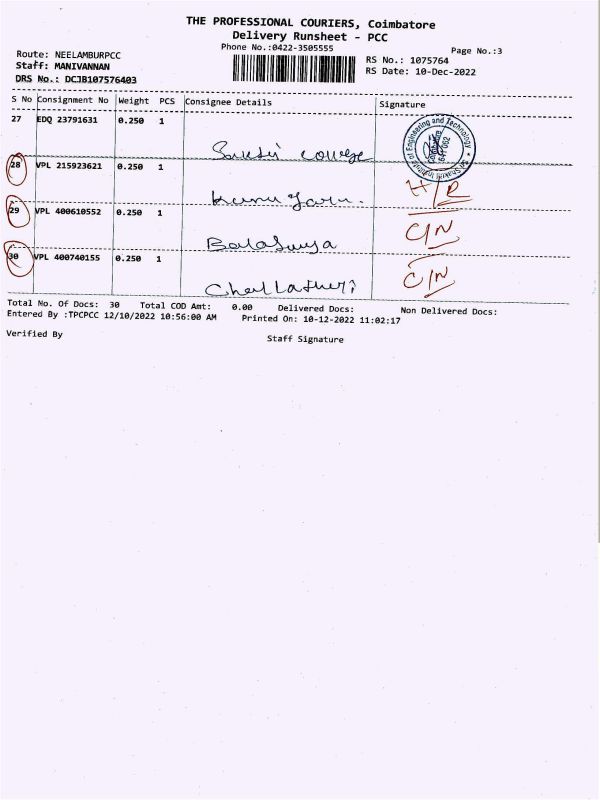 THE PROFESSIONAL COURIERS, Coimbatore
Delivery Runsheet - PCC
Phone No.:0422-3505555
Page No.:3
Route: NEELAMBURPCC
Staff: MANIVANNAN
DRS No.: DCJB107576403
RS No.: 1075764
RS Date: 10-Dec-2022
S No Consignment No Weight PCS Consignee Details Signature
27 EDQ 23791631 0.250 1 Sakthi College
28 VPL 215923621 0.250 1 H/R
29 VPL 400610552 0.250 1 Balasurya C/N
30 VPL 400740155 0.250 1 C/N
Total No. Of Docs: 30 Total COD Amt: 0.00 Delivered Docs: Non Delivered Docs:
Entered By :TPCPCC 12/10/2022 10:56:00 AM Printed On: 10-12-2022 11:02:17
Verified By Staff Signature